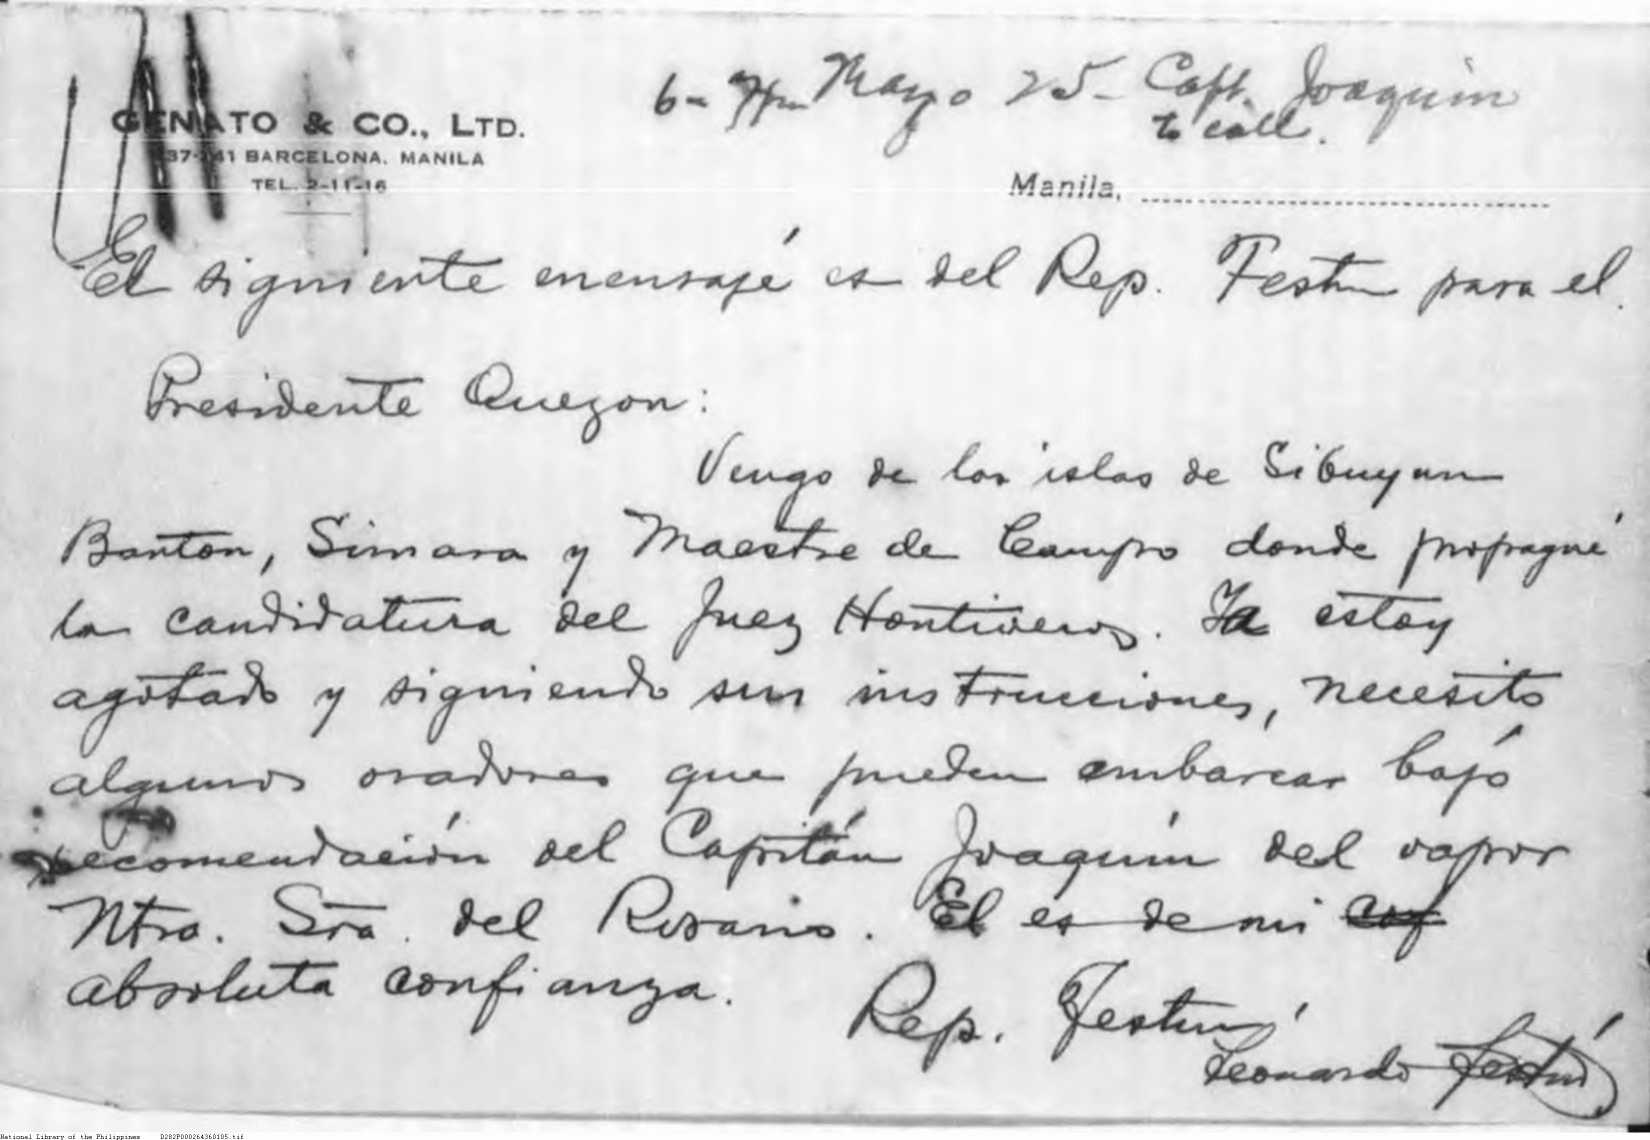 6- Mayo 25- Capt. Joaquin
to call.
GENATO & CO., LTD.
37-241 BARCELONA, MANILA
TEL. 2-11-16
Manila,
El siguiente mensajé es del Rep. Festin para el
Presidente Quezon:
Vengo de las islas de Sibuyan
Banton, Simara y Maestre de Campo donde propagué
la candidatura del Juez Hontiveros. Ya estoy
agotado y siguiendo sus instrucciones, necesito
algunos oradores que pueden embarcar bajó
recomendación del Capitán Joaquin del vapor
Ntra. Sra. del Rosario. El es de mi
absoluta confianza.
Rep. Festin
Leonardo Festin
National Library of the Philippines D282P000264360105.tif